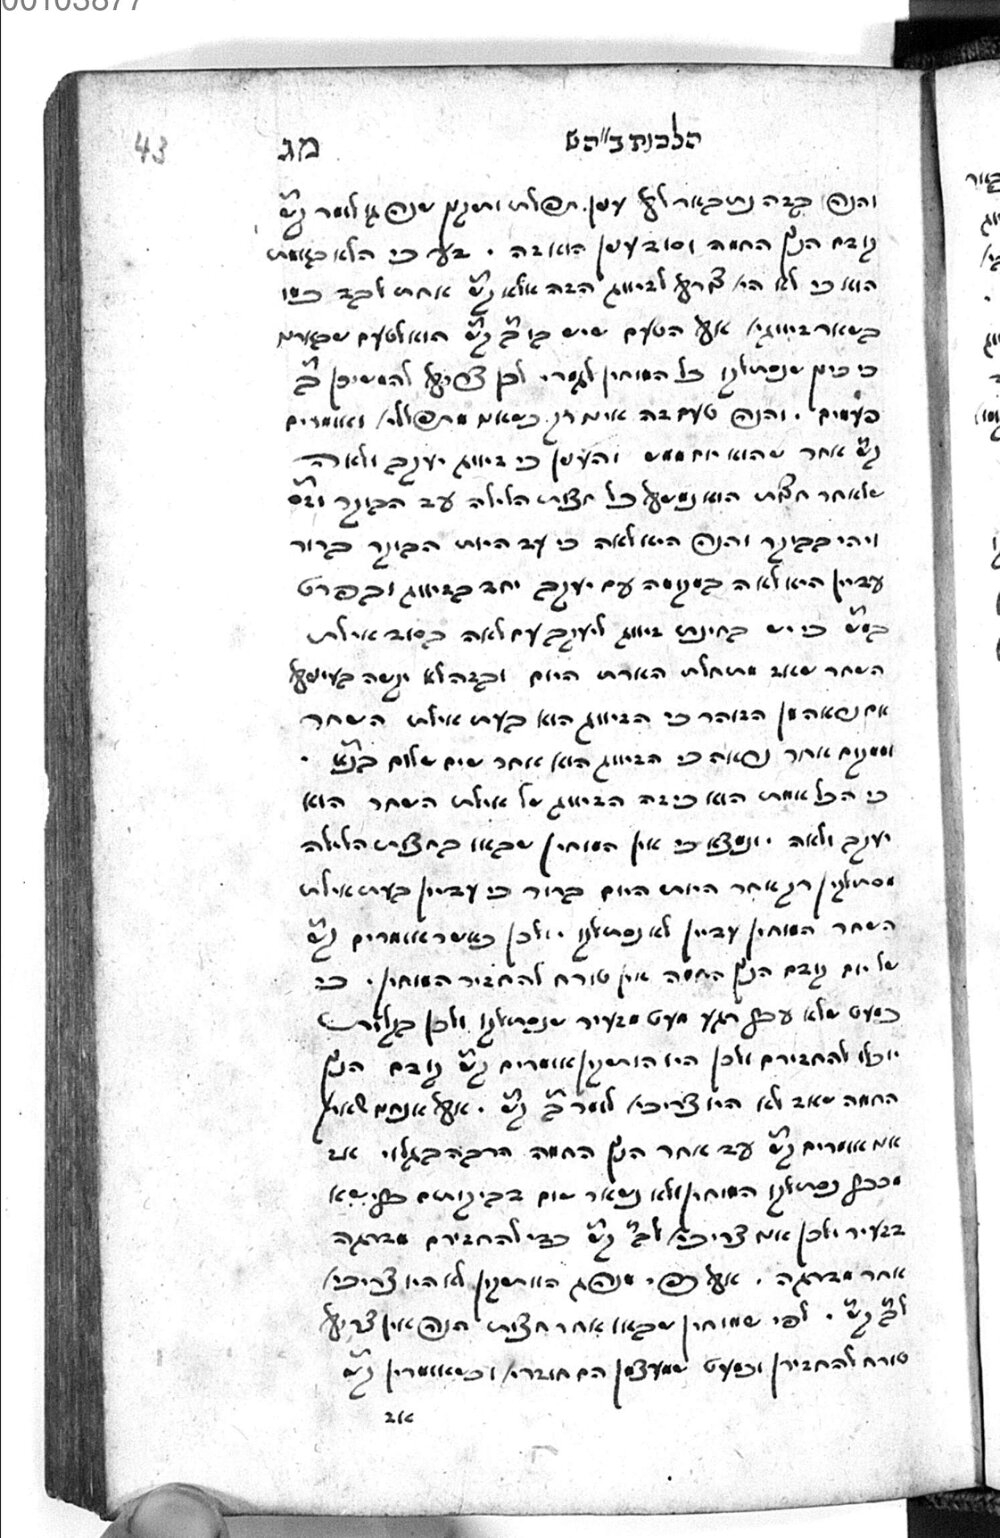 00103877
43
מג
הלכות ב״הט
והנה בזה נתבאר לך ענין תפלת ותיקין שנהגו לומר ק״ש
קודם הנץ החמה וסוד ענין הוא זה . דע כי הלא באמת
הוא כי לא היה צריך לזיווג הזה אלא ק״ש אחת לבד כמו
בשאר זיווגי׳ אך הטעם שיש בו ב״פ ק״ש הוא לטעם שבארנו
כי כיון שנסתלקו כל המוחין לגמרי לכן צריך להמשיכן ב״פ
פעמים . והנה טעם זה אינו רק כשאנו מתפללי׳ ואומרים
ק״ש אחר שהוא יום ממש והענין כי זיווג יעקב ולאה
שלאחר חצות הוא נמשך כל חצות הלילה עד הבוקר וז״ס
ויהי בבקר והנה היא לאה כי עד היות הבוקר ברור
עדיין היא לאה במקומה עם יעקב יחד בזיווג ובפרט
במ״ש כי יש בחינת זיווג ליעקב עם לאה בסוד אילת
השחר שאז מתחלת הארת היום ובזה לא יקשה בעיניך
אם נראה מן הזוהר כי הזיווג הוא בעת אילת השחר
וממקום אחר נראה כי הזיווג הוא אחר שים שלום בק״ש .
כי הכל אמת הוא כי זה הזיווג של אילת השחר הוא
יעקב ולאה . ונמצא כי אין המוחין שבאו בחצות הלילה
מסתלקין רק אחר היות היום ברור כי עדיין בעת אילת
השחר המוחין עדיין לא נסתלקו . ולכן כאשר אומרים ק״ש
של יום קודם הנץ החמה אין טורח להחזיר המוחין . כי
כמעט שלא עבר רגע מעט מזעיר שנסתלקו ולכן בקלות
יוכלו להחזירם ולכן היו הותיקין אומרים ק״ש קודם הנץ
החמה שאז לא היו צריכי׳ לומר ב״פ ק״ש . אך אנחנו שאין
אנו אומרים ק״ש עד אחר הנץ החמה הרבה בגלוי אז
מכבר נסתלקו המוחין ולא נשאר שום דביקותם כלל
בזעיר ולכן אנו צריכי׳ לב״פ ק״ש כדי להחזירם מדרגה
אחר מדרגה . אך כפי מנהג הותיקין לא היו צריכי׳
לב״פ ק״ש . לפי שמוחין שבאו אחר חצות הנה אין צריך
טורח להחזירן וכמעט שמעצמן הם חוזרי׳ וכשאומרין ק״ש
אז